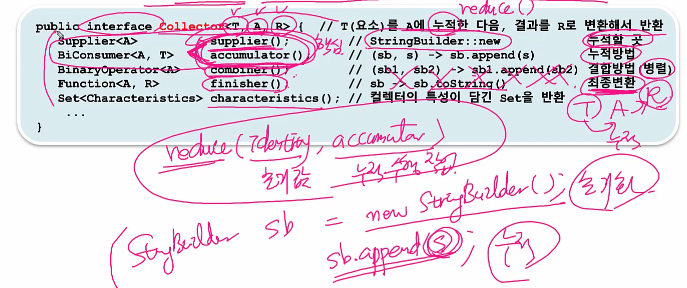 reduce()
public interface Collector<T, A, R> { // T(요소)를 A에 누적한 다음, 결과를 R로 변환해서 반환
Supplier<A> supplier(); // StringBuilder::new 누적할 곳
BiConsumer<A, T> accumulator() // (sb, s) -> sb.append(s) 누적방법
BinaryOperator<A> combiner() // (sb1, sb2) -> sb1.append(sb2) 결합방법 (병렬)
Function<A, R> finisher() // sb -> sb.toString() 최종변환
Set<Characteristics> characteristics(); // 컬렉터의 특성이 담긴 Set을 반환
...
}
T A R
누적
reduce(Identity, accumulator)
초기값 누적 수행 작업
StringBuilder sb = new StringBuilder(); 초기화
sb.append(s); 누적